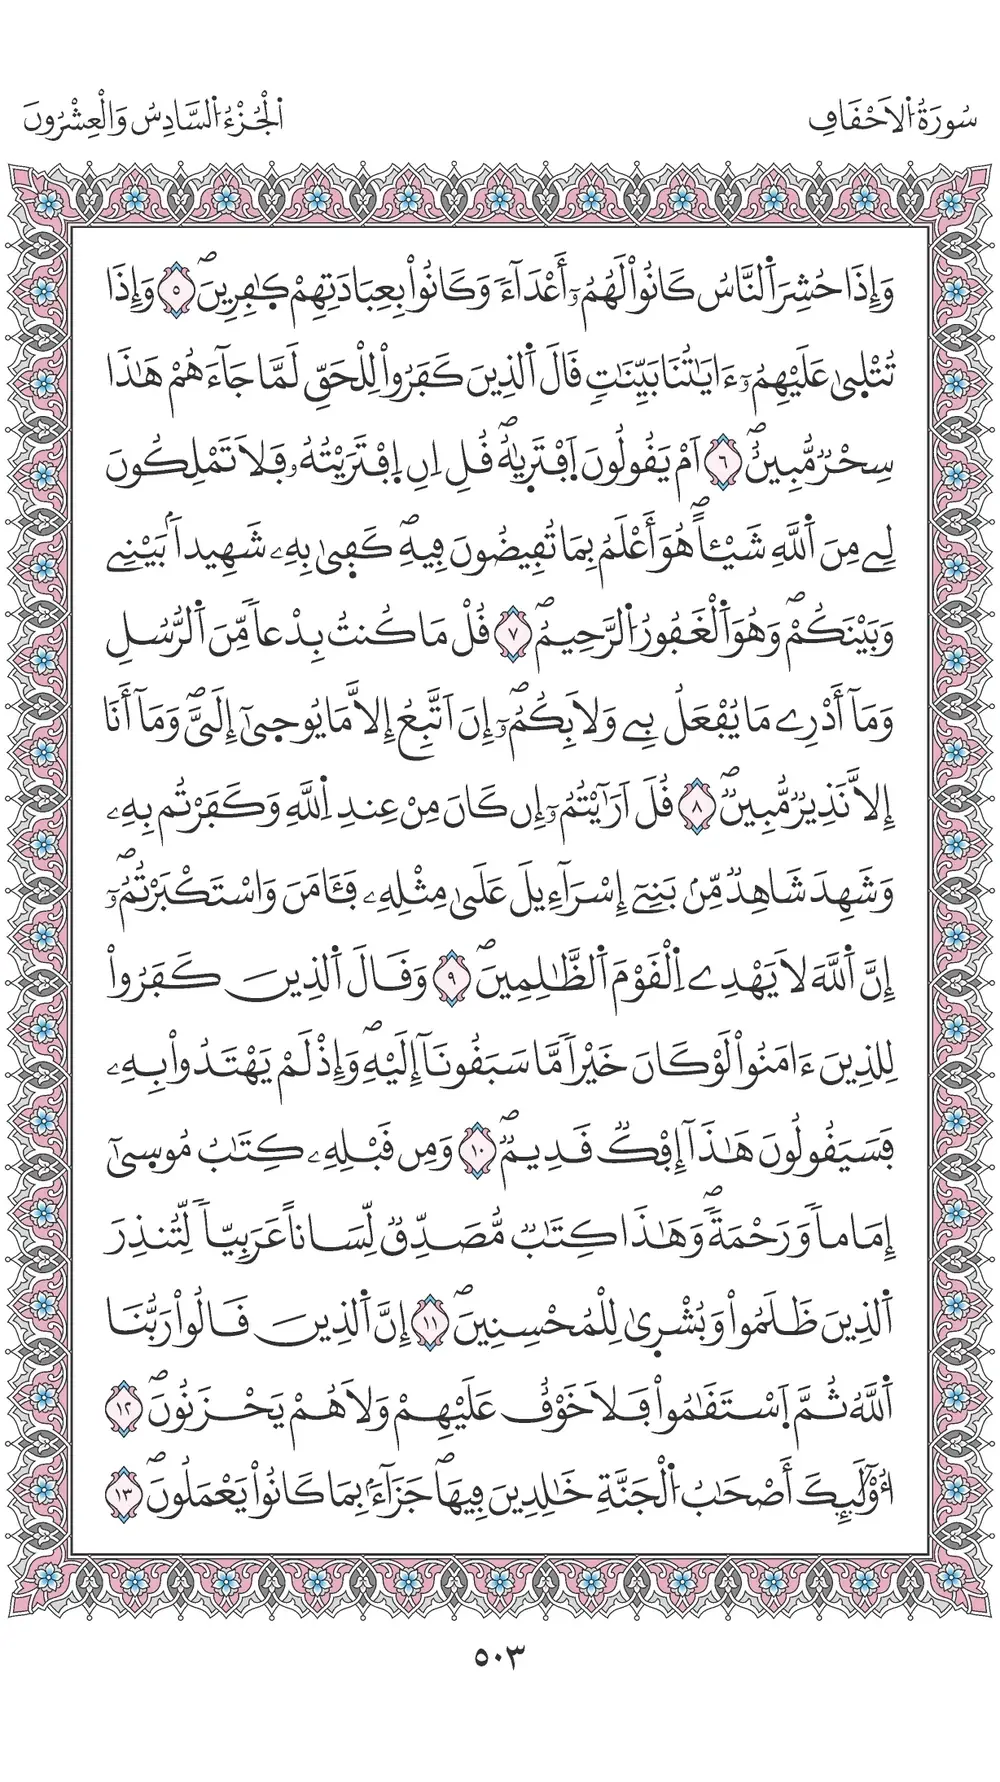 سُورَةُ اُ۬لَاحْقَافِ
اَ۬لْجُزْءُ اُ۬لسَّادِسُ وَالْعِشْرُونَ
وَإِذَا حُشِرَ اَ۬لنَّاسُ كَانُواْ لَهُمُۥٓ أَعْدَآءٗ وَكَانُواْ بِعِبَادَتِهِمْ كٰ۪فِرِينَۖ ٥ وَإِذَا
تُتْل۪يٰ عَلَيْهِمُۥٓ ءَايَٰتُنَا بَيِّنَٰتٖ قَالَ اَ۬لذِينَ كَفَرُواْ لِلْحَقِّ لَمَّا جَآءَهُمْ هَٰذَا
سِحْرٞ مُّبِينٌۖ ٦ اَمْ يَقُولُونَ اَ۪فْتَر۪يٰهُۖ قُلِ اِنِ اِ۪فْتَرَيْتُهُۥ فَلَا تَمْلِكُونَ
لِے مِنَ اَ۬للَّهِ شَيْـٔاًۖ هُوَ أَعْلَمُ بِمَا تُفِيضُونَ فِيهِۖ كَف۪يٰ بِهِۦ شَهِيداَۢ بَيْنِے
وَبَيْنَكُمْۖ وَهُوَ اَ۬لْغَفُورُ اُ۬لرَّحِيمُۖ ٧ قُلْ مَا كُنتُ بِدْعاٗ مِّنَ اَ۬لرُّسُلِ
وَمَآ أَدْرِے مَا يُفْعَلُ بِے وَلَا بِكُمُۥٓۖ إِنَ اَتَّبِعُ إِلَّا مَا يُوح۪يٰٓ إِلَيَّۖ وَمَآ أَنَا
إِلَّا نَذِيرٞ مُّبِينٞۖ ٨ قُلَ اَرَٰٓيْتُمُۥٓ إِن كَانَ مِنْ عِندِ اِ۬للَّهِ وَكَفَرْتُم بِهِۦ
وَشَهِدَ شَاهِدٞ مِّنۢ بَنِےٓ إِسْرَآءِيلَ عَلَىٰ مِثْلِهِۦ فَـَٔامَنَ وَاسْتَكْبَرْتُمُۥٓۖ
إِنَّ اَ۬للَّهَ لَا يَهْدِے اِ۬لْقَوْمَ اَ۬لظَّٰلِمِينَۖ ٩ وَقَالَ اَ۬لذِينَ كَفَرُواْ
لِلذِينَ ءَامَنُواْ لَوْ كَانَ خَيْراٗ مَّا سَبَقُونَآ إِلَيْهِۖ وَإِذْ لَمْ يَهْتَدُواْ بِهِۦ
فَسَيَقُولُونَ هَٰذَآ إِفْكٞ قَدِيمٞۖ ١٠ وَمِن قَبْلِهِۦ كِتَٰبُ مُوس۪يٰٓ
إِمَاماٗ وَرَحْمَةٗۖ وَهَٰذَا كِتَٰبٞ مُّصَدِّقٞ لِّسَاناً عَرَبِيّاٗ لِّتُنذِرَ
اَ۬لذِينَ ظَلَمُواْ وَبُشْر۪يٰ لِلْمُحْسِنِينَۖ ١١ إِنَّ اَ۬لذِينَ قَالُواْ رَبُّنَا
اَ۬للَّهُ ثُمَّ اَ۪سْتَقَٰمُواْ فَلَا خَوْفٌ عَلَيْهِمْ وَلَا هُمْ يَحْزَنُونَۖ ١٢
أُوْلَٰٓئِكَ أَصْحَٰبُ اُ۬لْجَنَّةِ خَٰلِدِينَ فِيهَاۖ جَزَآءَۢ بِمَا كَانُواْ يَعْمَلُونَۖ ١٣
٥٠٣